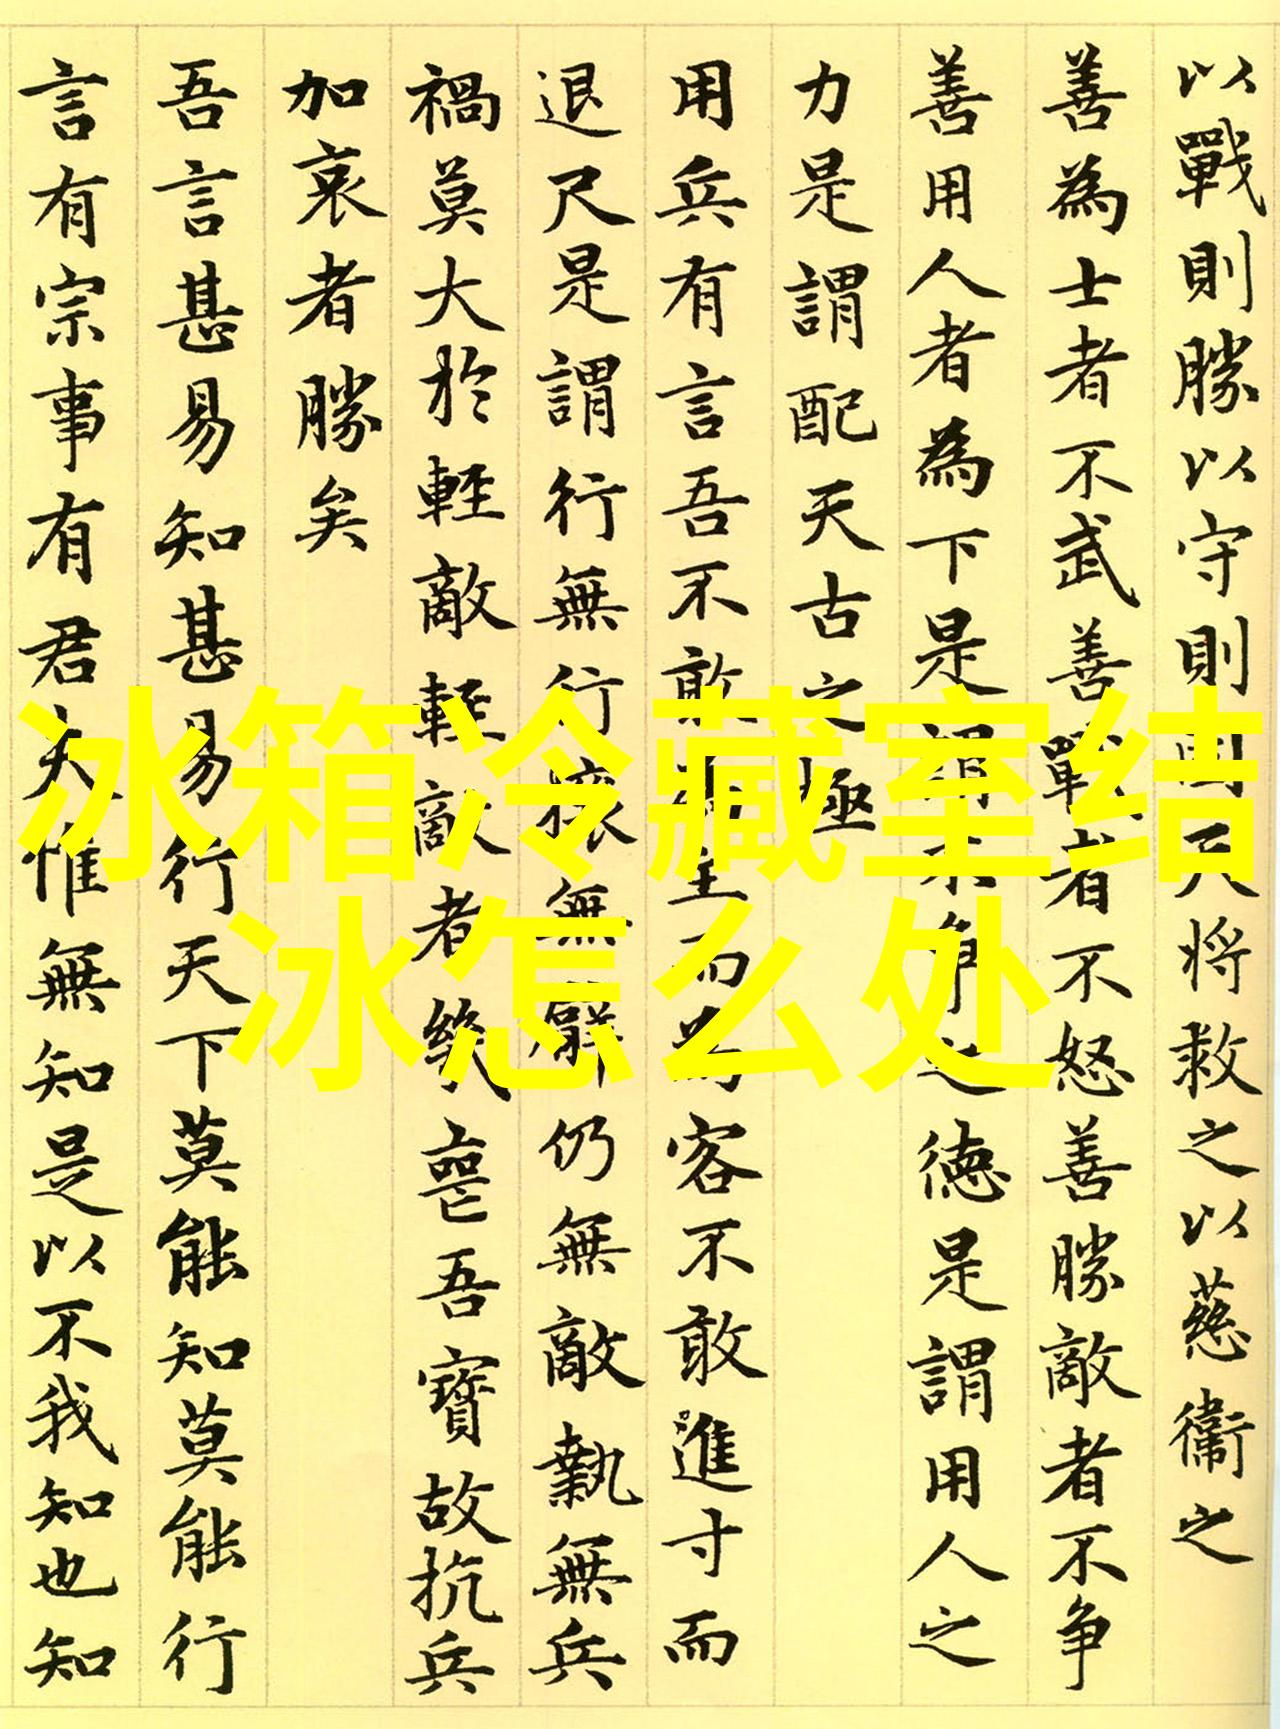 以戰則勝以守則固天將救之以慈衞之
善為士者不武善戰者不怒善勝敵者不争
善用人者為下是謂不争之德是謂用人之
力是謂配天古之極
用兵有言吾不敢為主而為客不敢進寸而
退尺是謂行無行攘無辭仍無敵執無兵
禍莫大於輕敵輕敵者幾喪吾寶故抗兵
加哀者勝矣
吾言甚易知甚易行天下莫能知莫能行
言有宗事有君夫惟無知是以不我知也知
冰箱冷藏室结
冰怎么处